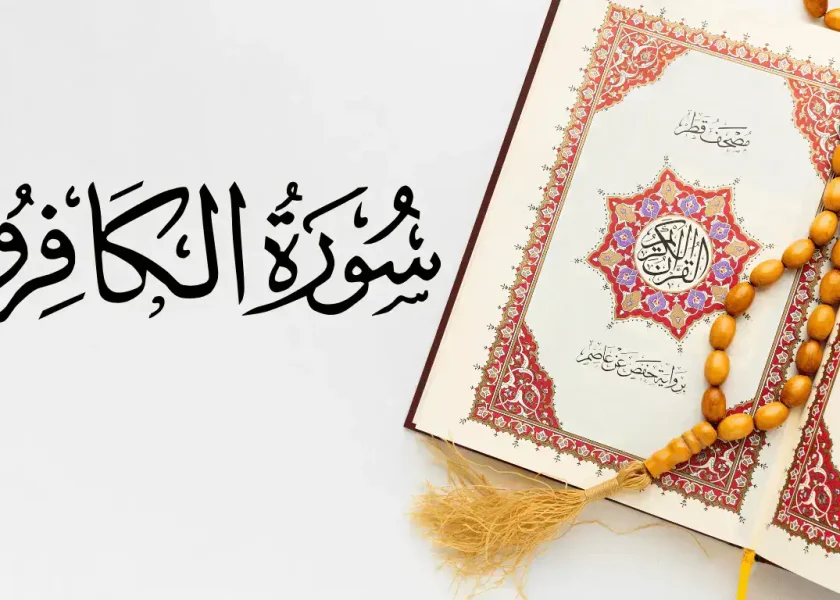 سُورَةُ الكَافِرُو
مُصْحَفُ قَطَر
القرآن الكريم
برواية حفص عن عاصم